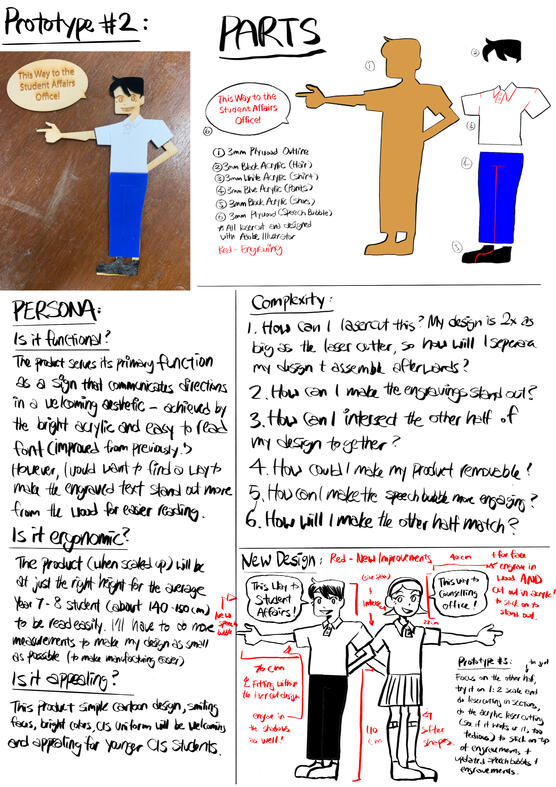 Prototype #2:
This Way to the
Student Affairs
Office!
PARTS
This Way to the
Student Affairs
Office!
① 3mm Plywood Outline
② 3mm Black Acrylic (Hair)
③ 3mm White Acrylic (Shirt)
④ 3mm Blue Acrylic (Pants)
⑤ 3mm Black Acrylic (Shoes)
⑥ 3mm Plywood (Speech Bubble)
* All lasercut and designed
with Adobe Illustrator
Red - Engraving
①
②
③
④
⑤
⑥
PERSONA:
Is it functional?
The product serves its primary function
as a sign that communicates directions
in a welcoming aesthetic - achieved by
the bright acrylic and easy to read
font (improved from previously.)
However, I would want to find a way to
make the engraved text stand out more
from the wood for easier reading.
Is it ergonomic?
The product (when scaled up) will be
at just the right height for the average
Year 7-8 student (about 140-150cm)
to be read easily. I'll have to do more
measurements to make my design as small
as possible (to make manufacturing easier)
Is it appealing?
This product simple cartoon design, smiling
faces, bright colors, CIS uniform will be welcoming
and appealing for younger CIS students.
Complexity:
1. How can I lasercut this? My design is 2x as
big as the laser cutter, so how will I seperate
my design + assemble afterwards?
2. How can I make the engravings stand out?
3. How can I intersect the other half of
my design together?
4. How could I make my product removable?
5. How can I make the speech bubble more engaging?
6. How will I make the other half match?
New Design: Red - New Improvements
40 cm
+ for face
engrave in
wood AND
cut out in acrylic
to stick on to
stand out.
New
speech
bubble
This way to
Student
Affairs!
This way to
Counselling
office!
22cm
76 cm
Fitting within
the lasercut design
engrave in
the shadows
as well!
110
cm
softer
shapes.
Prototype #3:
Focus on the other half,
try it on 1:2 scale and
do lasercutting in sections,
do the acrylic lasercutting
(see if it works or it's too
tedious) to stick on top
of engravements +
updated speech bubbles +
engravements.